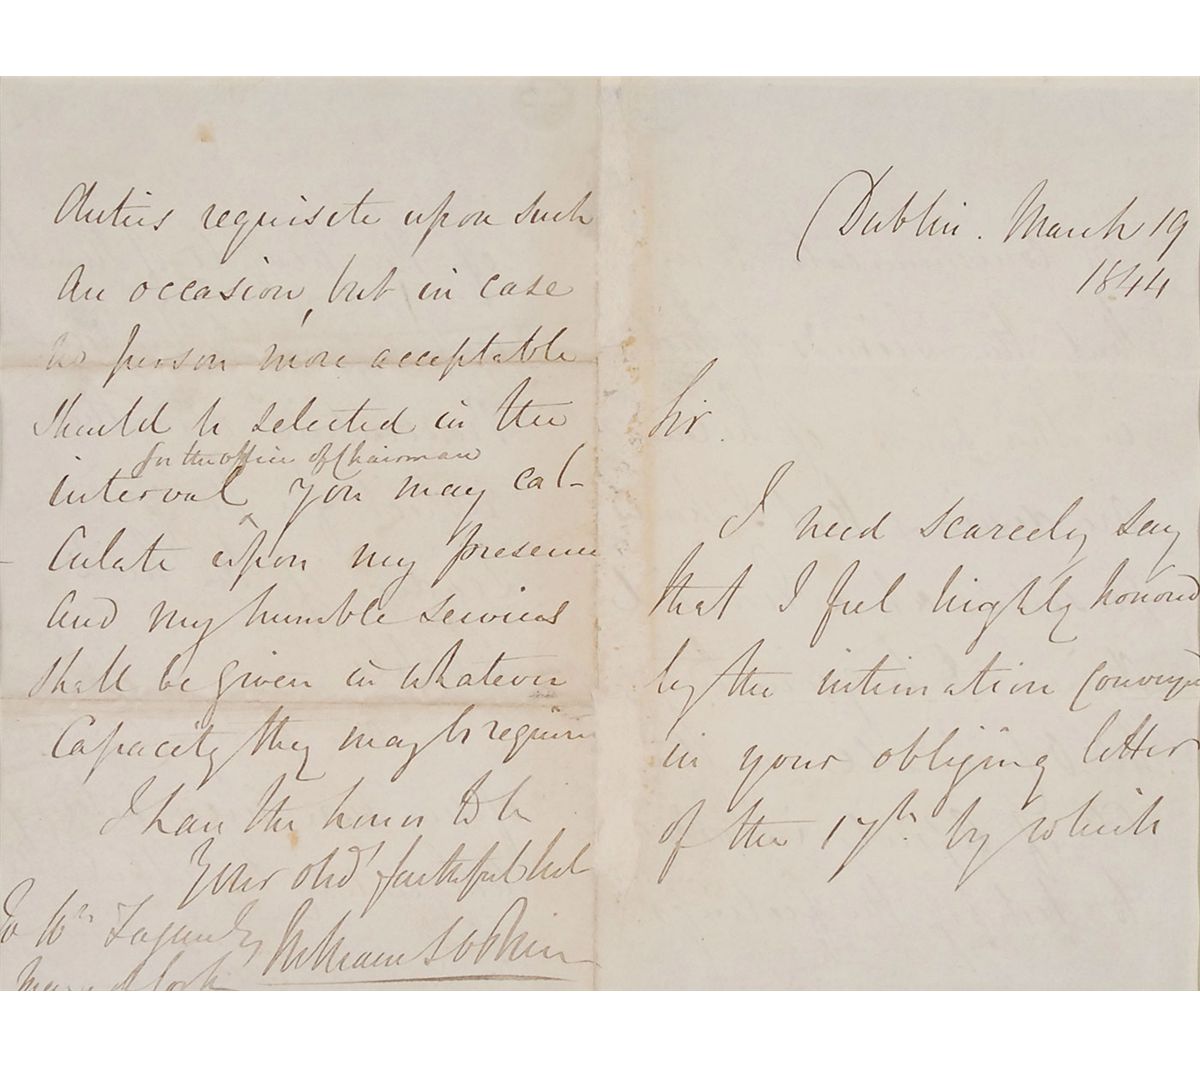 Dublin. March 19
1844
Sir.
I need scarcely say
that I feel highly honored
by the intimation conveyed
in your obliging letter
of the 17th. by which
duties requisite upon such
an occasion, but in case
no person more acceptable
should be selected in the
for the office of Chairman
interval you may cal-
- culate upon my presence
and my humble services
shall be given in whatever
capacity they may be required
I have the honor to be
Your obt faithful
William S O'Brien
To Wm Fagan Esq
Mayor of Cork